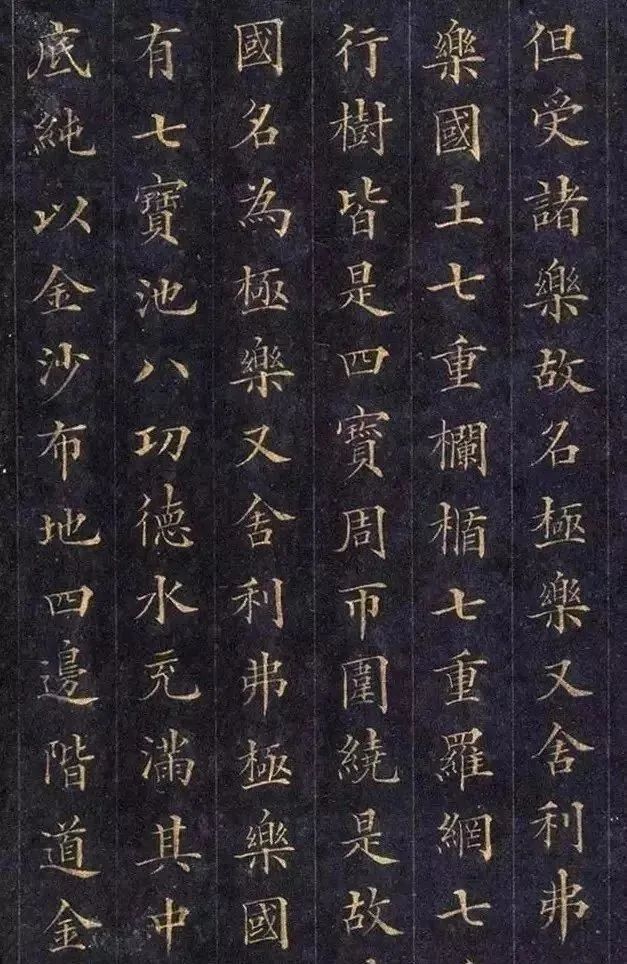 但受諸樂故名極樂又舍利弗
樂國土七重欄楯七重羅網七
行樹皆是四寶周帀圍繞是故
國名為極樂又舍利弗極樂國
有七寶池八功德水充滿其中
底純以金沙布地四邊階道金